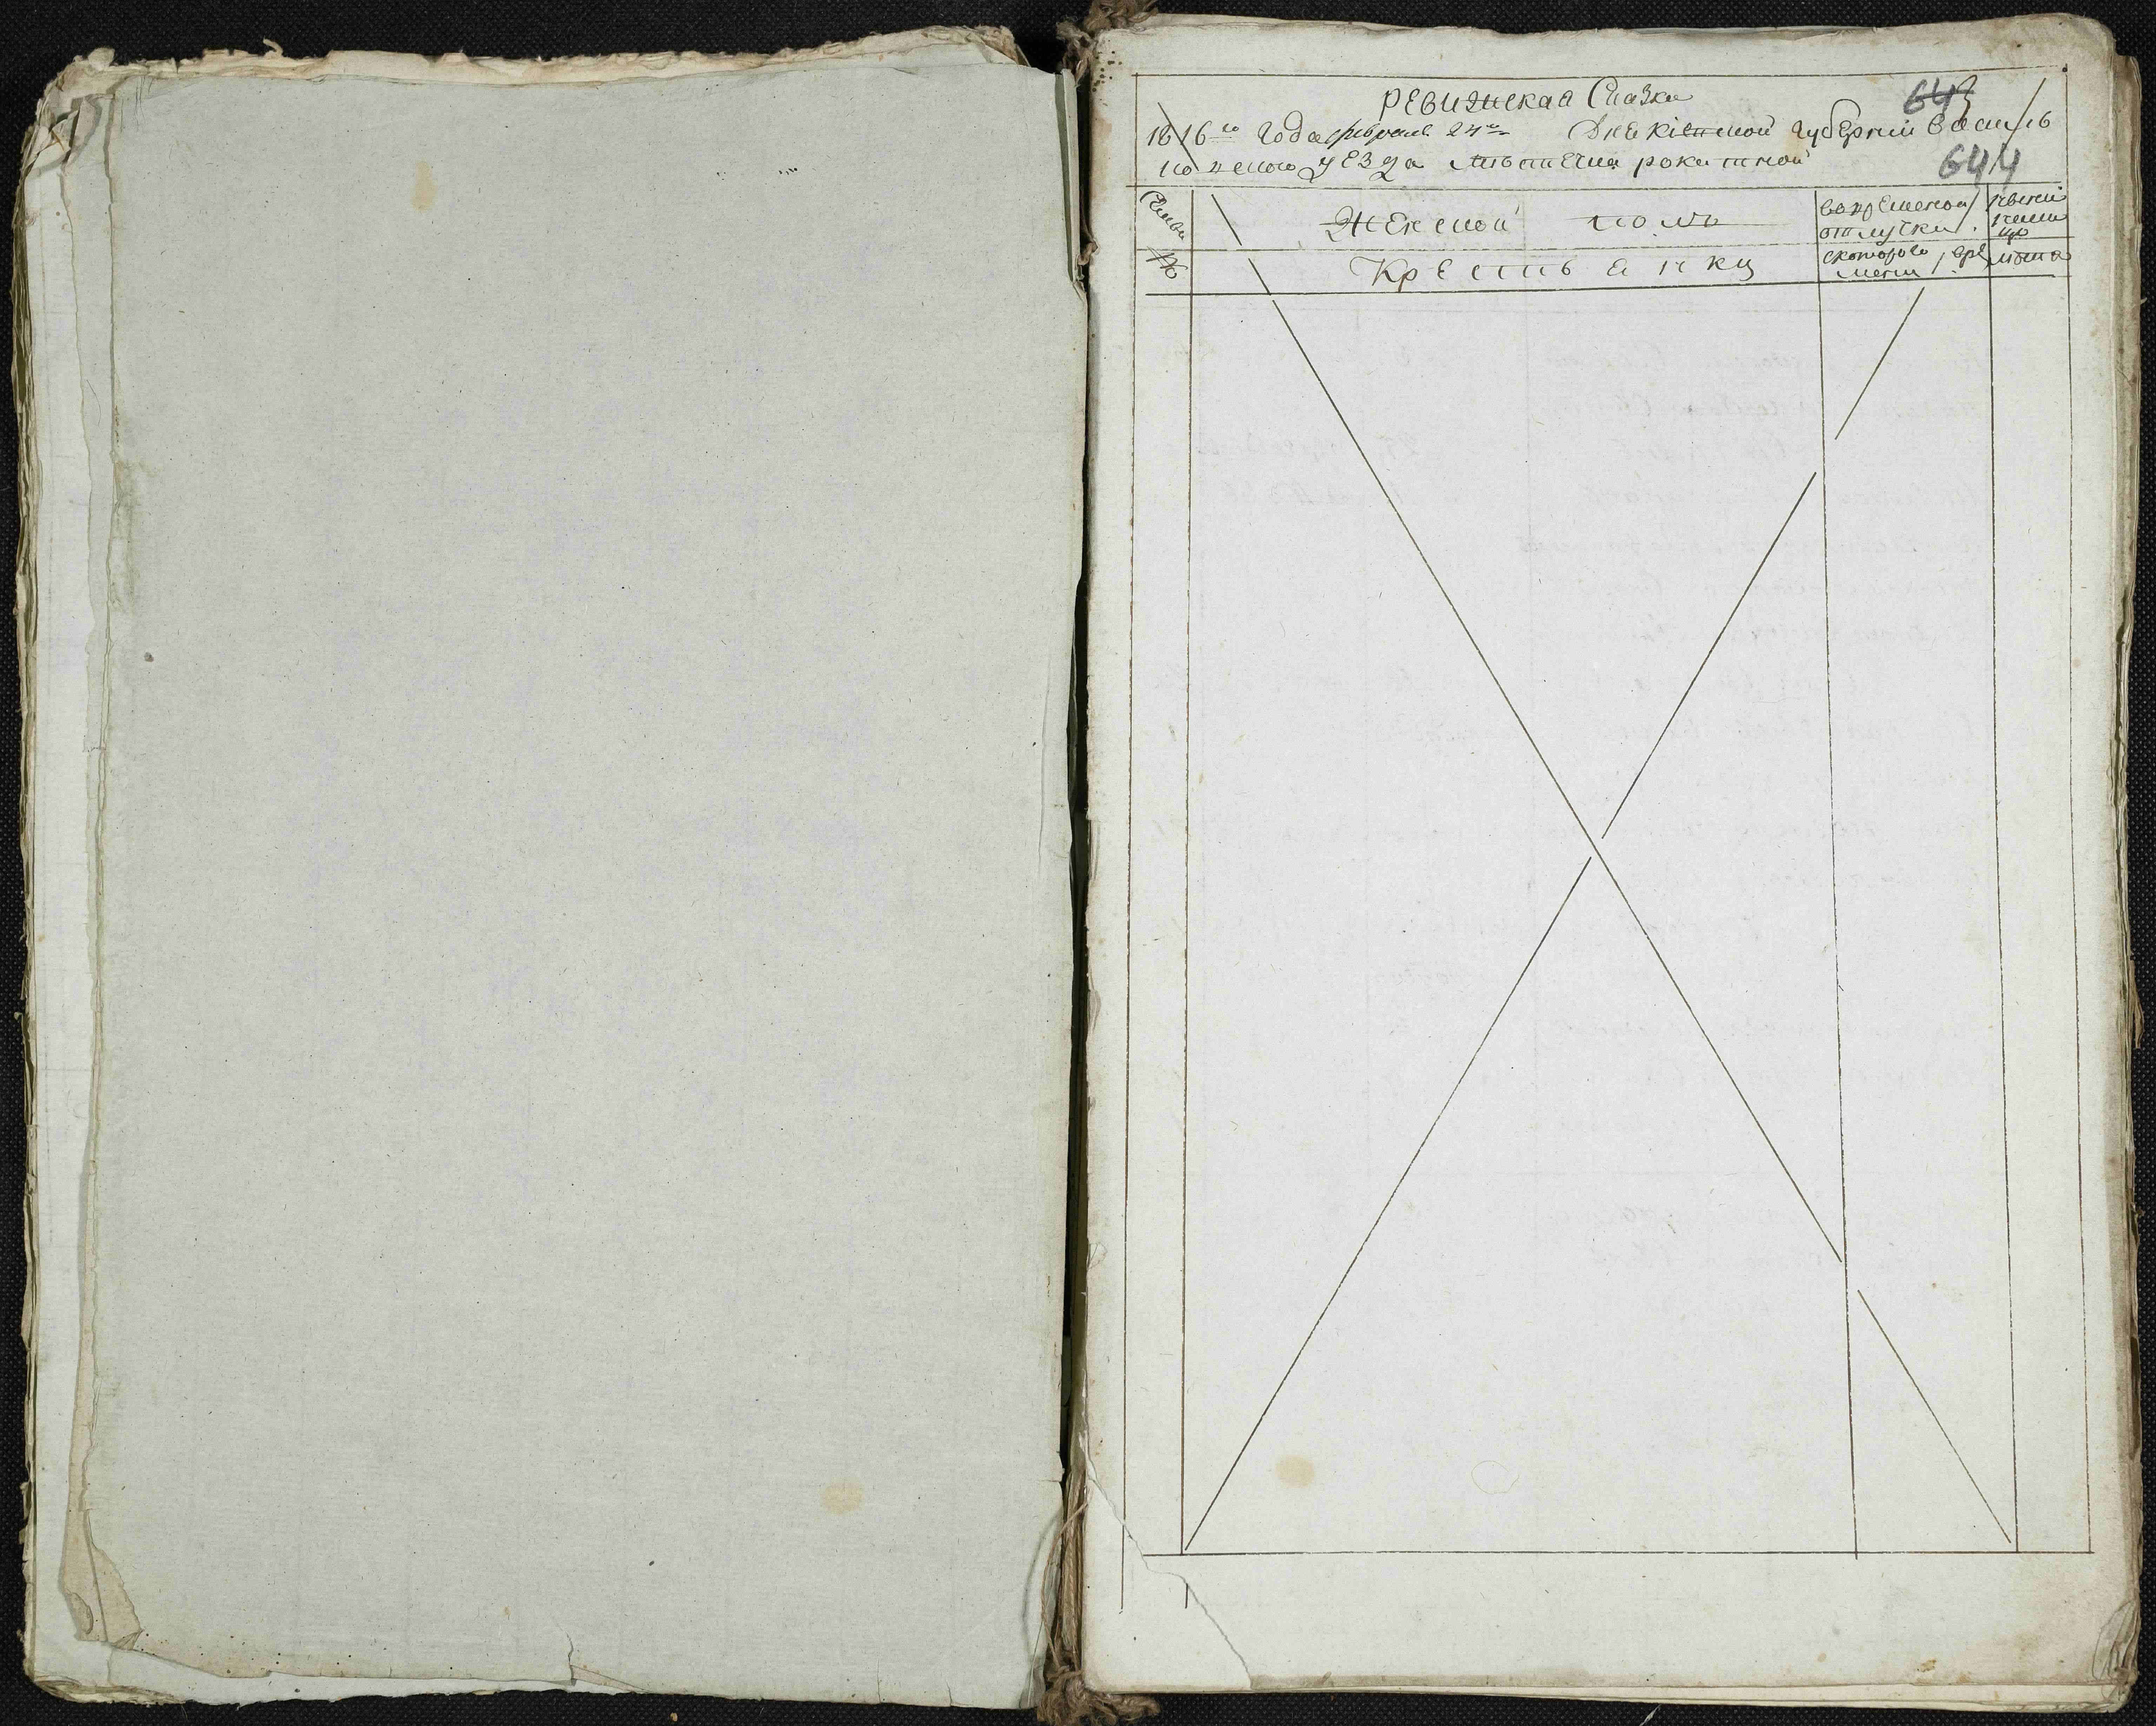 РЕВИЖСКАЯ Сказка
643
1816го Года февраля 24го Дня Кіевской губернии василь
ковского уезда местечка рокитной
644
Семьи Женской полъ вовременой отлучки
Крестьянки скоторого времени лета
№